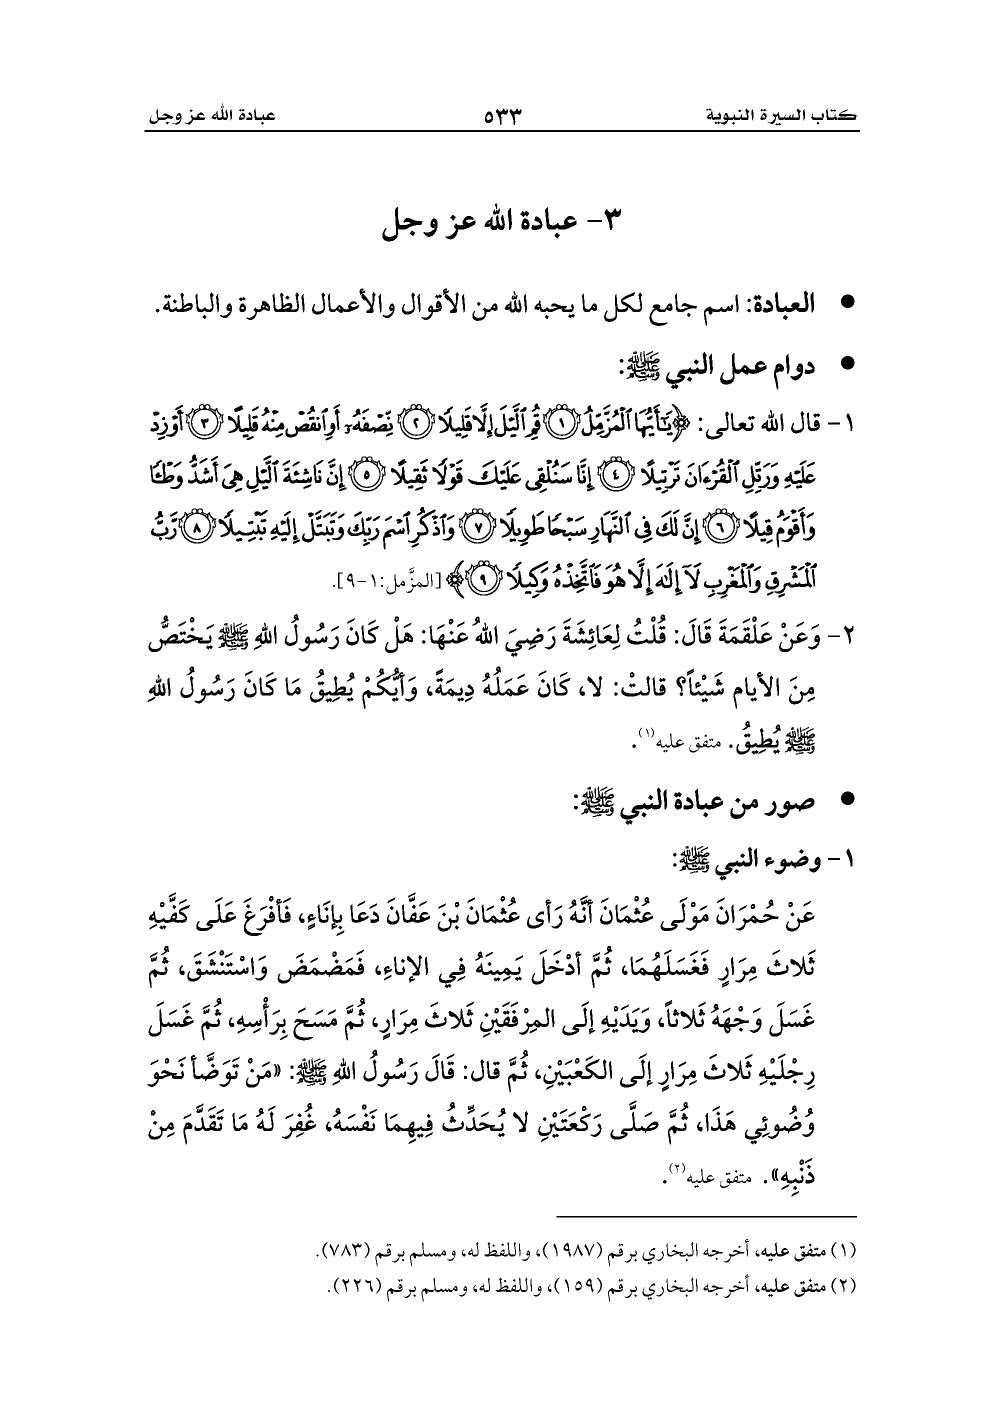 كتاب السيرة النبوية ٥٣٣ عبادة الله عز وجل
٣- عبادة الله عز وجل
● العبادة: اسم جامع لكل ما يحبه الله من الأقوال والأعمال الظاهرة والباطنة.
● دوام عمل النبي ﷺ:
١- قال الله تعالى: ﴿يَٰٓأَيُّهَا ٱلْمُزَّمِّلُ ١ قُمِ ٱلَّيْلَ إِلَّا قَلِيلًا ٢ نِّصْفَهُۥٓ أَوِ ٱنقُصْ مِنْهُ قَلِيلًا ٣ أَوْ زِدْ
عَلَيْهِ وَرَتِّلِ ٱلْقُرْءَانَ تَرْتِيلًا ٤ إِنَّا سَنُلْقِى عَلَيْكَ قَوْلًا ثَقِيلًا ٥ إِنَّ نَاشِئَةَ ٱلَّيْلِ هِىَ أَشَدُّ وَطْـًٔا
وَأَقْوَمُ قِيلًا ٦ إِنَّ لَكَ فِى ٱلنَّهَارِ سَبْحًا طَوِيلًا ٧ وَٱذْكُرِ ٱسْمَ رَبِّكَ وَتَبَتَّلْ إِلَيْهِ تَبْتِيلًا ٨ رَّبُّ
ٱلْمَشْرِقِ وَٱلْمَغْرِبِ لَآ إِلَٰهَ إِلَّا هُوَ فَٱتَّخِذْهُ وَكِيلًا ٩﴾ [المزَّمل:١-٩].
٢- وَعَنْ عَلْقَمَةَ قَالَ: قُلْتُ لِعَائِشَةَ رَضِيَ اللهُ عَنْهَا: هَلْ كَانَ رَسُولُ اللهِ ﷺ يَخْتَصُّ
مِنَ الأيام شَيْئاً؟ قالتْ: لا، كَانَ عَمَلُهُ دِيمَةً، وَأيُّكُمْ يُطِيقُ مَا كَانَ رَسُولُ اللهِ
ﷺ يُطِيقُ. متفق عليه(١).
● صور من عبادة النبي ﷺ:
١- وضوء النبي ﷺ:
عَنْ حُمْرَانَ مَوْلَى عُثْمَانَ أنَّهُ رَأى عُثْمَانَ بْنَ عَفَّانَ دَعَا بِإنَاءٍ، فَأفْرَغَ عَلَى كَفَّيْهِ
ثَلاثَ مِرَارٍ فَغَسَلَهُمَا، ثُمَّ أدْخَلَ يَمِينَهُ فِي الإناءِ، فَمَضْمَضَ وَاسْتَنْشَقَ، ثُمَّ
غَسَلَ وَجْهَهُ ثَلاثاً، وَيَدَيْهِ إلَى المِرْفَقَيْنِ ثَلاثَ مِرَارٍ، ثُمَّ مَسَحَ بِرَأْسِهِ، ثُمَّ غَسَلَ
رِجْلَيْهِ ثَلاثَ مِرَارٍ إلَى الكَعْبَيْنِ، ثُمَّ قال: قَالَ رَسُولُ اللهِ ﷺ: «مَنْ تَوَضَّأ نَحْوَ
وُضُوئِي هَذَا، ثُمَّ صَلَّى رَكْعَتَيْنِ لا يُحَدِّثُ فِيهِمَا نَفْسَهُ، غُفِرَ لَهُ مَا تَقَدَّمَ مِنْ
ذَنْبِهِ». متفق عليه(٢).
(١) متفق عليه، أخرجه البخاري برقم (١٩٨٧)، واللفظ له، ومسلم برقم (٧٨٣).
(٢) متفق عليه، أخرجه البخاري برقم (١٥٩)، واللفظ له، ومسلم برقم (٢٢٦).